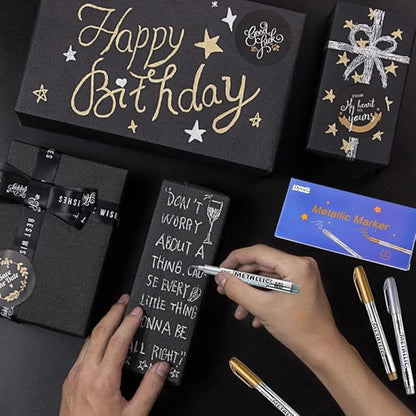 Happy
Birthday
Good
luck
FROM
My heart
to
yours
BEST WISHES
"DON'T
WORRY
ABOUT A
THING. CAU
SE EVERY
LITTLE THING
GONNA BE
ALL RIGHT"
Metallic Marker
METALLIC